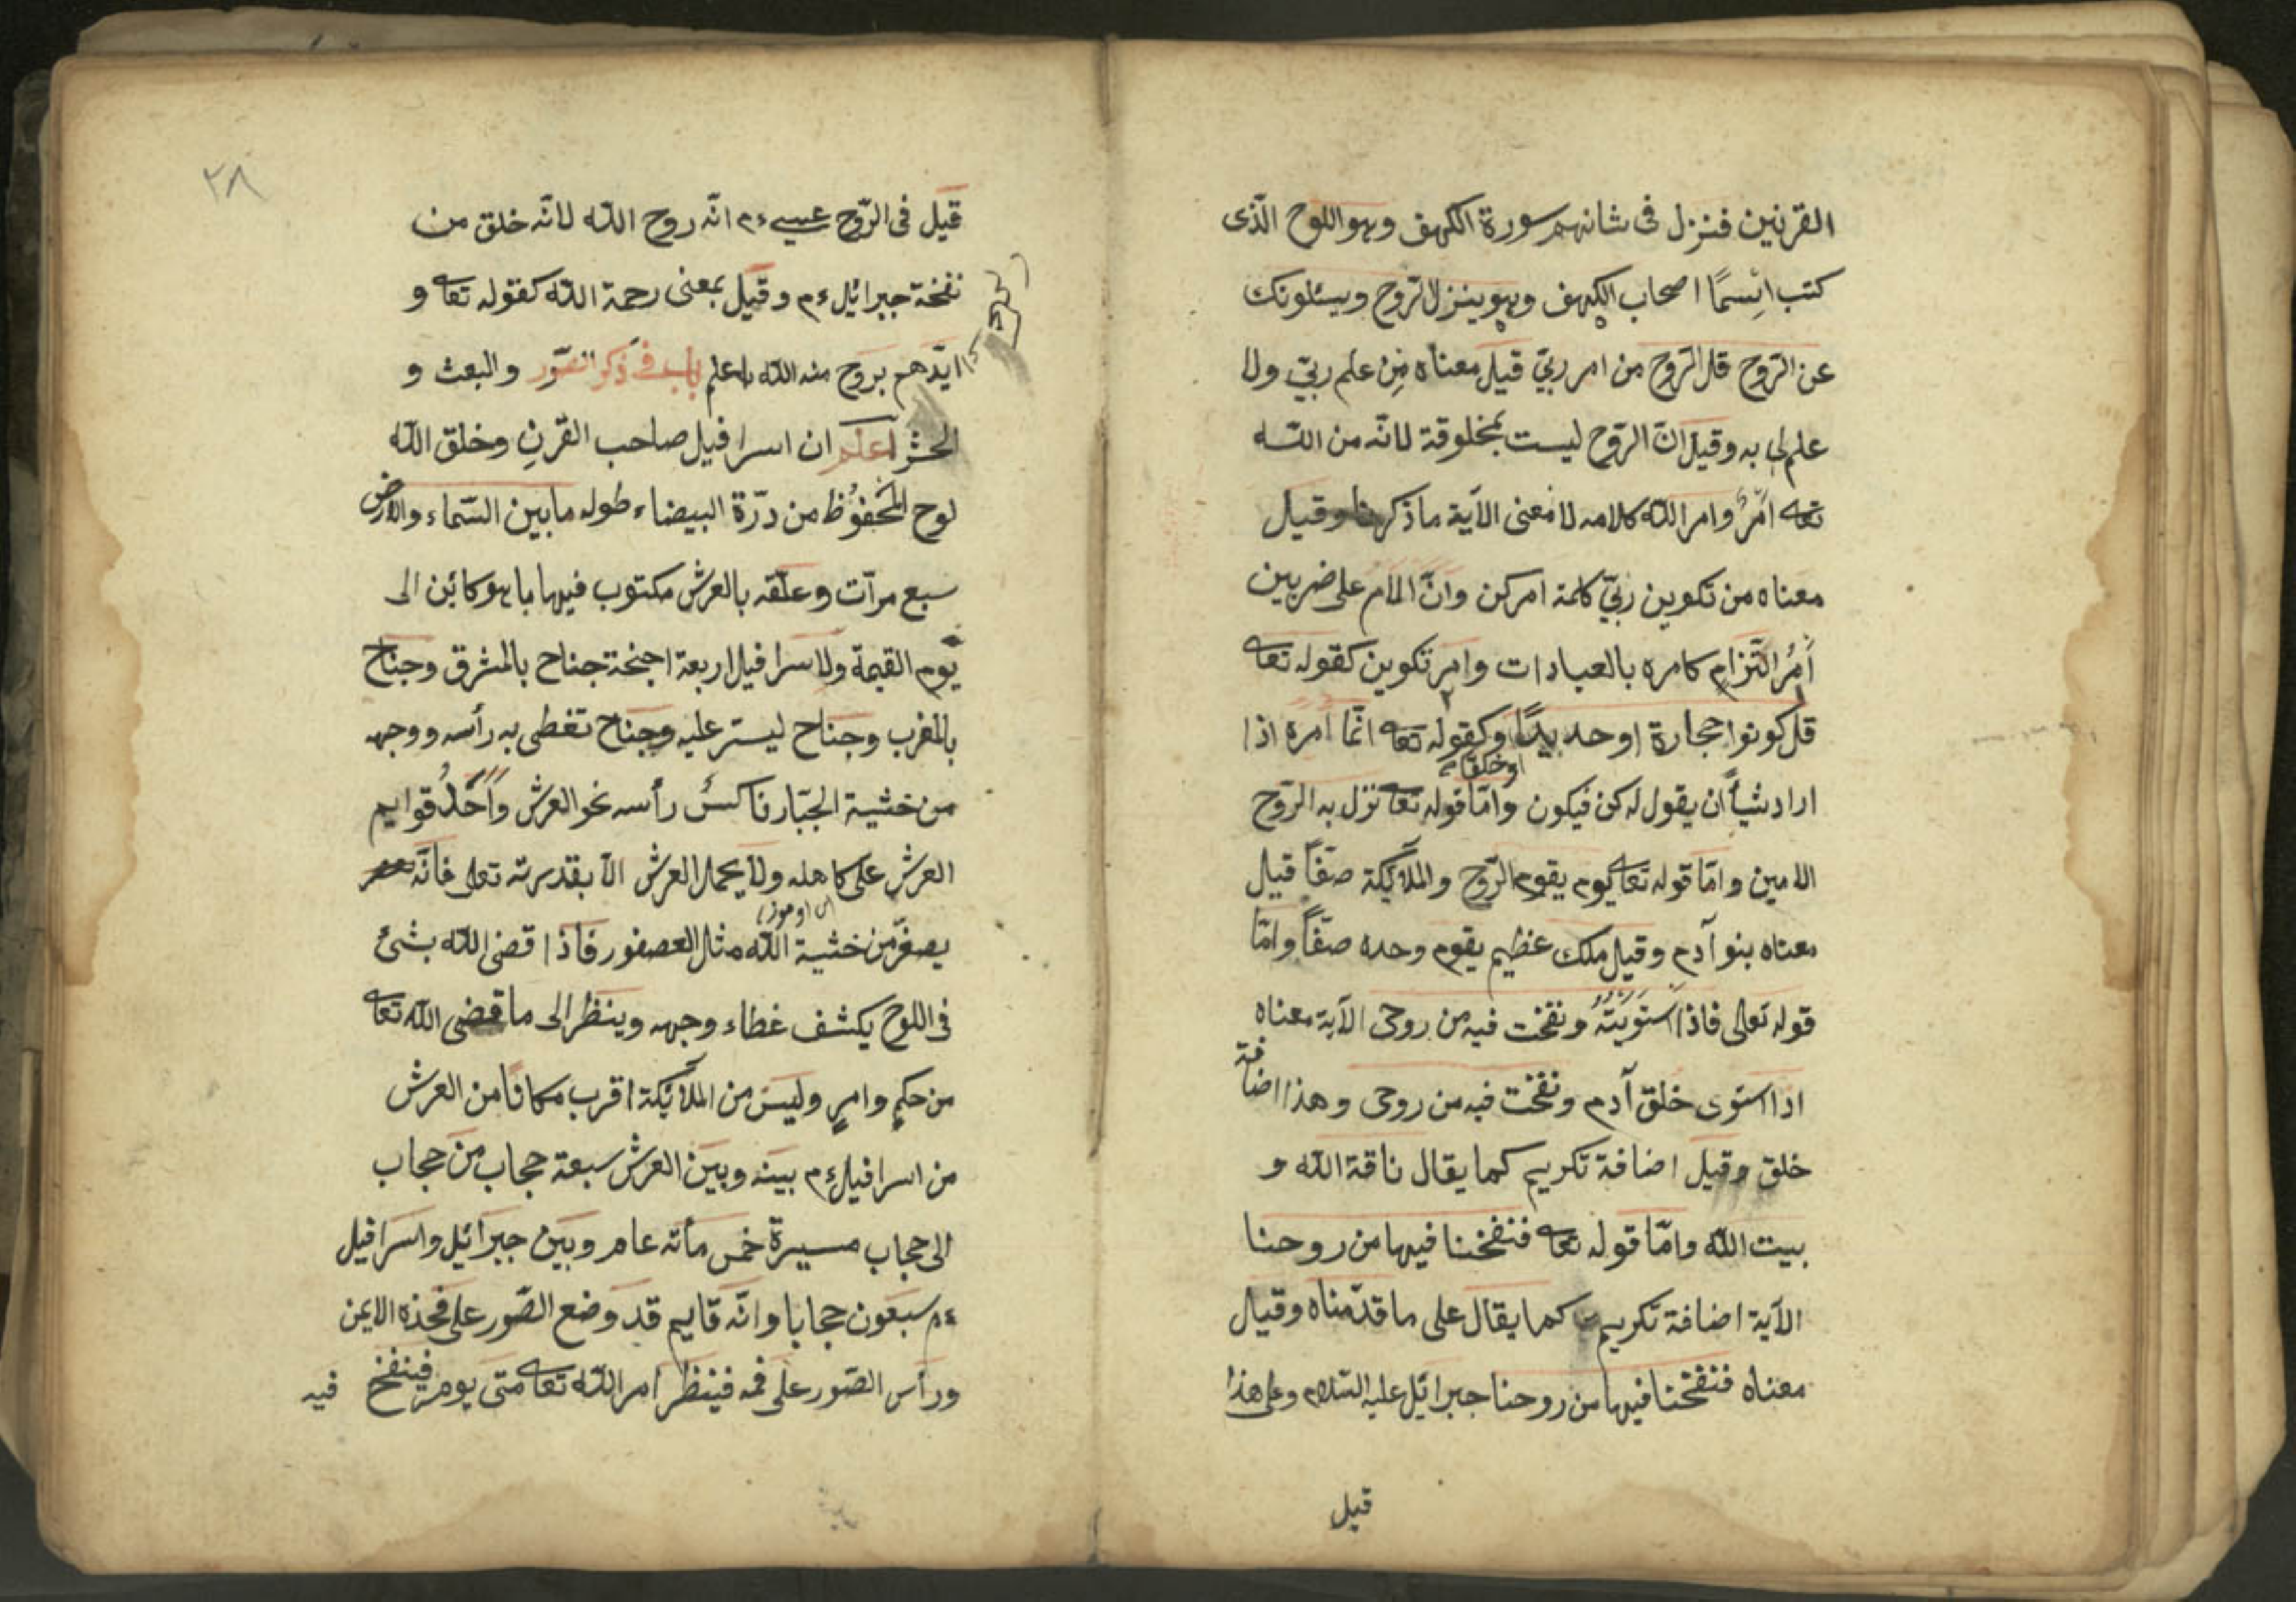 القرنين فنزل فى شانهم سورة الكهف وهو اللوح الّذى
كتب اسما اصحاب الكهف وهو ينزل الرّوح ويسئلونك
عن الرّوح قل الرّوح من امر ربّى قيل معناه مِن علم ربّى ولا
علم لى به وقيل انّ الرّوح ليست بمخلوقة لانّه من اللّه
تعا امرٌ وامر اللّه كلامه لا معنى الآية ما ذكرنا وقيل
معناه من تكوين ربّى كلمة امر كن وانّ الامر على ضربين
اَمرُ التزام كامره بالعبادات وامر تكوين كقوله تعا
قل كونوا حجارة او حديدًا وكقوله تعا انّما امره اذا
او خلقا م
اراد شيأً ان يقول له كن فيكون وامّا قوله تعا نزل به الرّوح
الامين وامّا قوله تعا يوم يقوم الرّوح والملآئكة صفّاً قيل
معناه بنوا آدم وقيل ملك عظيم يقوم وحده صفّاً وامّا
قوله تعالى فاذا استويته ونفخت فيه من روحى الآية معناه
اذا استوى خلق آدم ونفخت فيه من روحى وهذا اضافة
خلق وقيل اضافة تكريم كما يقال ناقة اللّه و
بيت اللّه وامّا قوله تعا فنفخنا فيها من روحنا
الآية اضافة تكريم كما يقال على ما قدّمناه وقيل
معناه فنفخنا فيها من روحنا جبرائيل عليه السّلام وعلى هذا
قيل
٢٨
قيل فى الرّوح عيسى ءم انّه روح اللّه لانّه خلق من
نفخة جبرائيل ءم وقيل بمعنى رحمة اللّه كقوله تعا و
ايّدهم بروح منه اللّه اعلم باب فى ذكر الصّور والبعث و
الحشر اعلم ان اسرافيل صاحب القرنِ وخلق اللّه
لوح المحفوُظ من درّة البيضاء طوله ما بين السّماء والارض
سبع مرّات وعلّقه بالعرش مكتوب فيها ما هو كائن الى
يوم القيمة ولاسرافيل اربعة اجنحة جناح بالمشرق وجناح
بالمغرب وجناح ليستر عليه وجناح تغطى به رأسه ووجهه
من خشية الجبّار ناكس رأسه نحو العرش واَحدُ قوايم
العرش على كاهله ولا يحمل العرش الّا بقدرته تعالى فانّه
يصغّر من خشية اللّه مثال العصفور فاذا قضى اللّه بشئ
فى اللوح يكشف غطاء وجهه وينظر الى ما قضى اللّه تعا
من حكمٍ وامرٍ وليس من الملآئكة اقرب مكانا من العرش
من اسرافيل ءم بينه وبين العرش سبعة حجاب من حجاب
الى حجاب مسيرة خمس مأته عام وبين جبرائيل واسرافيل
ءم سبعون حجابا وانّه قايم قد وضع الصّور على فخذه الايمن
ورأس الصّور على فمه فينظر امر اللّه تعا متى يومر فينفخ فيه